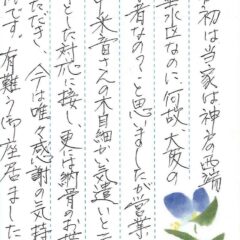 初は当家は神戸の西端
垂水区なのに何故、大阪の
者なの?と思いましたが営業
さんの木目細かい気遣いと
とした対応に接し、更には納骨のお
ただき、今は唯々感謝の気持
です。有難う御座居ました